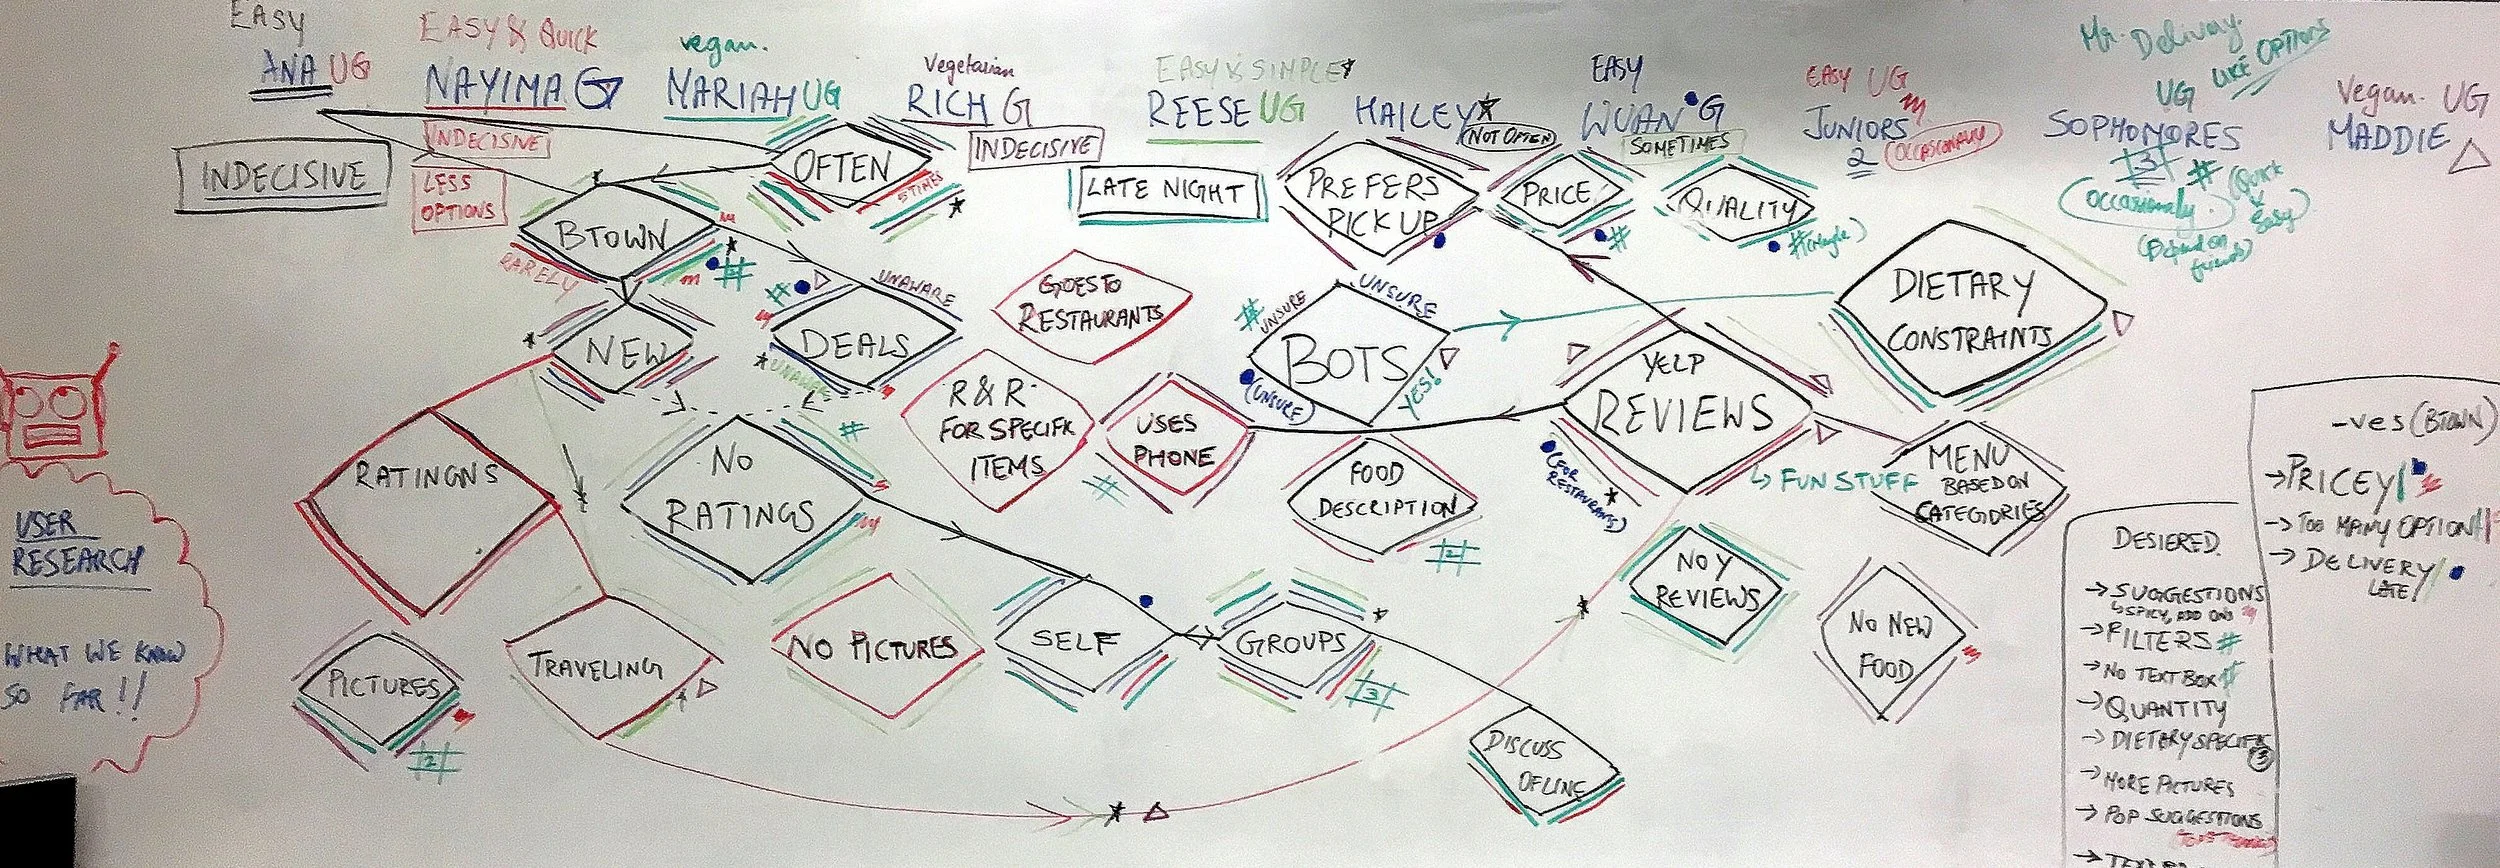 EASY
ANA UG
INDECISIVE
EASY & QUICK
NAYIMA G
INDECISIVE
LESS
OPTIONS
vegan.
MARIAH UG
Vegetarian
RICH G
INDECISIVE
EASY & SIMPLE
REESE UG
LATE NIGHT
HAILEY
NOT OFTEN
EASY
WUAN G
SOMETIMES
EASY UG
JUNIORS
2
OCCASIONALY
Mr. Delivery.
UG LIKE OPTIONS
SOPHOMORES
3 #
Occasionaly.
(Quick
& easy)
(Depend on
friends)
Vegan. UG
MADDIE
OFTEN
5 TIMES
BTOWN
RARELY
#
NEW
#
UNAWARE
DEALS
UNAWARE
GOES TO
RESTAURANTS
PREFERS
PICK UP
PRICE
#
QUALITY
#(Maybe)
# UNSURE
UNSURE
BOTS
(UNSURE)
YES!
DIETARY
CONSTRAINTS
YELP
REVIEWS
(FOR
RESTAURANTS)
↳ FUN STUFF
MENU
BASED ON
CATEGORIES
R & R
FOR SPECIFIC
ITEMS
USES
PHONE
#
FOOD
DESCRIPTION
2
RATINGNS
#
NO
RATINGS
PICTURES
2
TRAVELING
NO PICTURES
SELF
GROUPS
3
NO Y
REVIEWS
NO NEW
FOOD
DISCUSS
OFLINE
USER
RESEARCH
WHAT WE KNOW
SO FAR!!
-ves (BTOWN)
→ PRICEY
→ TOO MANY OPTION
→ DELIVERY
LATE
DESIERED.
→ SUGGESTIONS
↳ SPICY, ADD ONS
→ FILTERS #
→ NO TEXT BOX #
→ QUANTITY
→ DIETARY SPECIFIC
3
→ MORE PICTURES
→ POP SUGGESTIONS